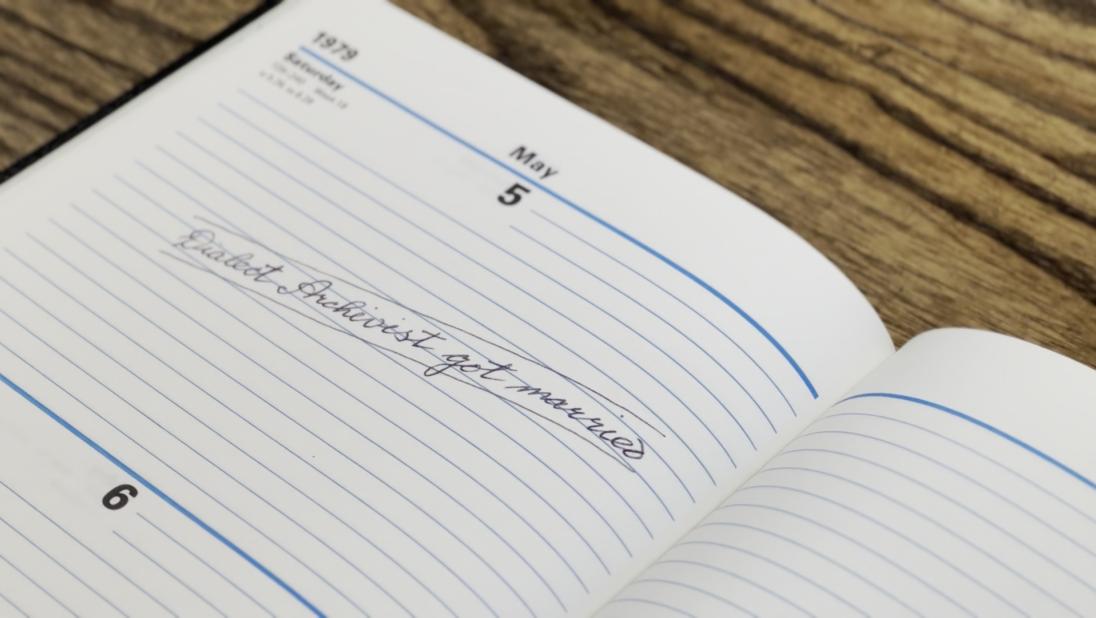 1979
Saturday
May
5
Dialect Archivist got married
6